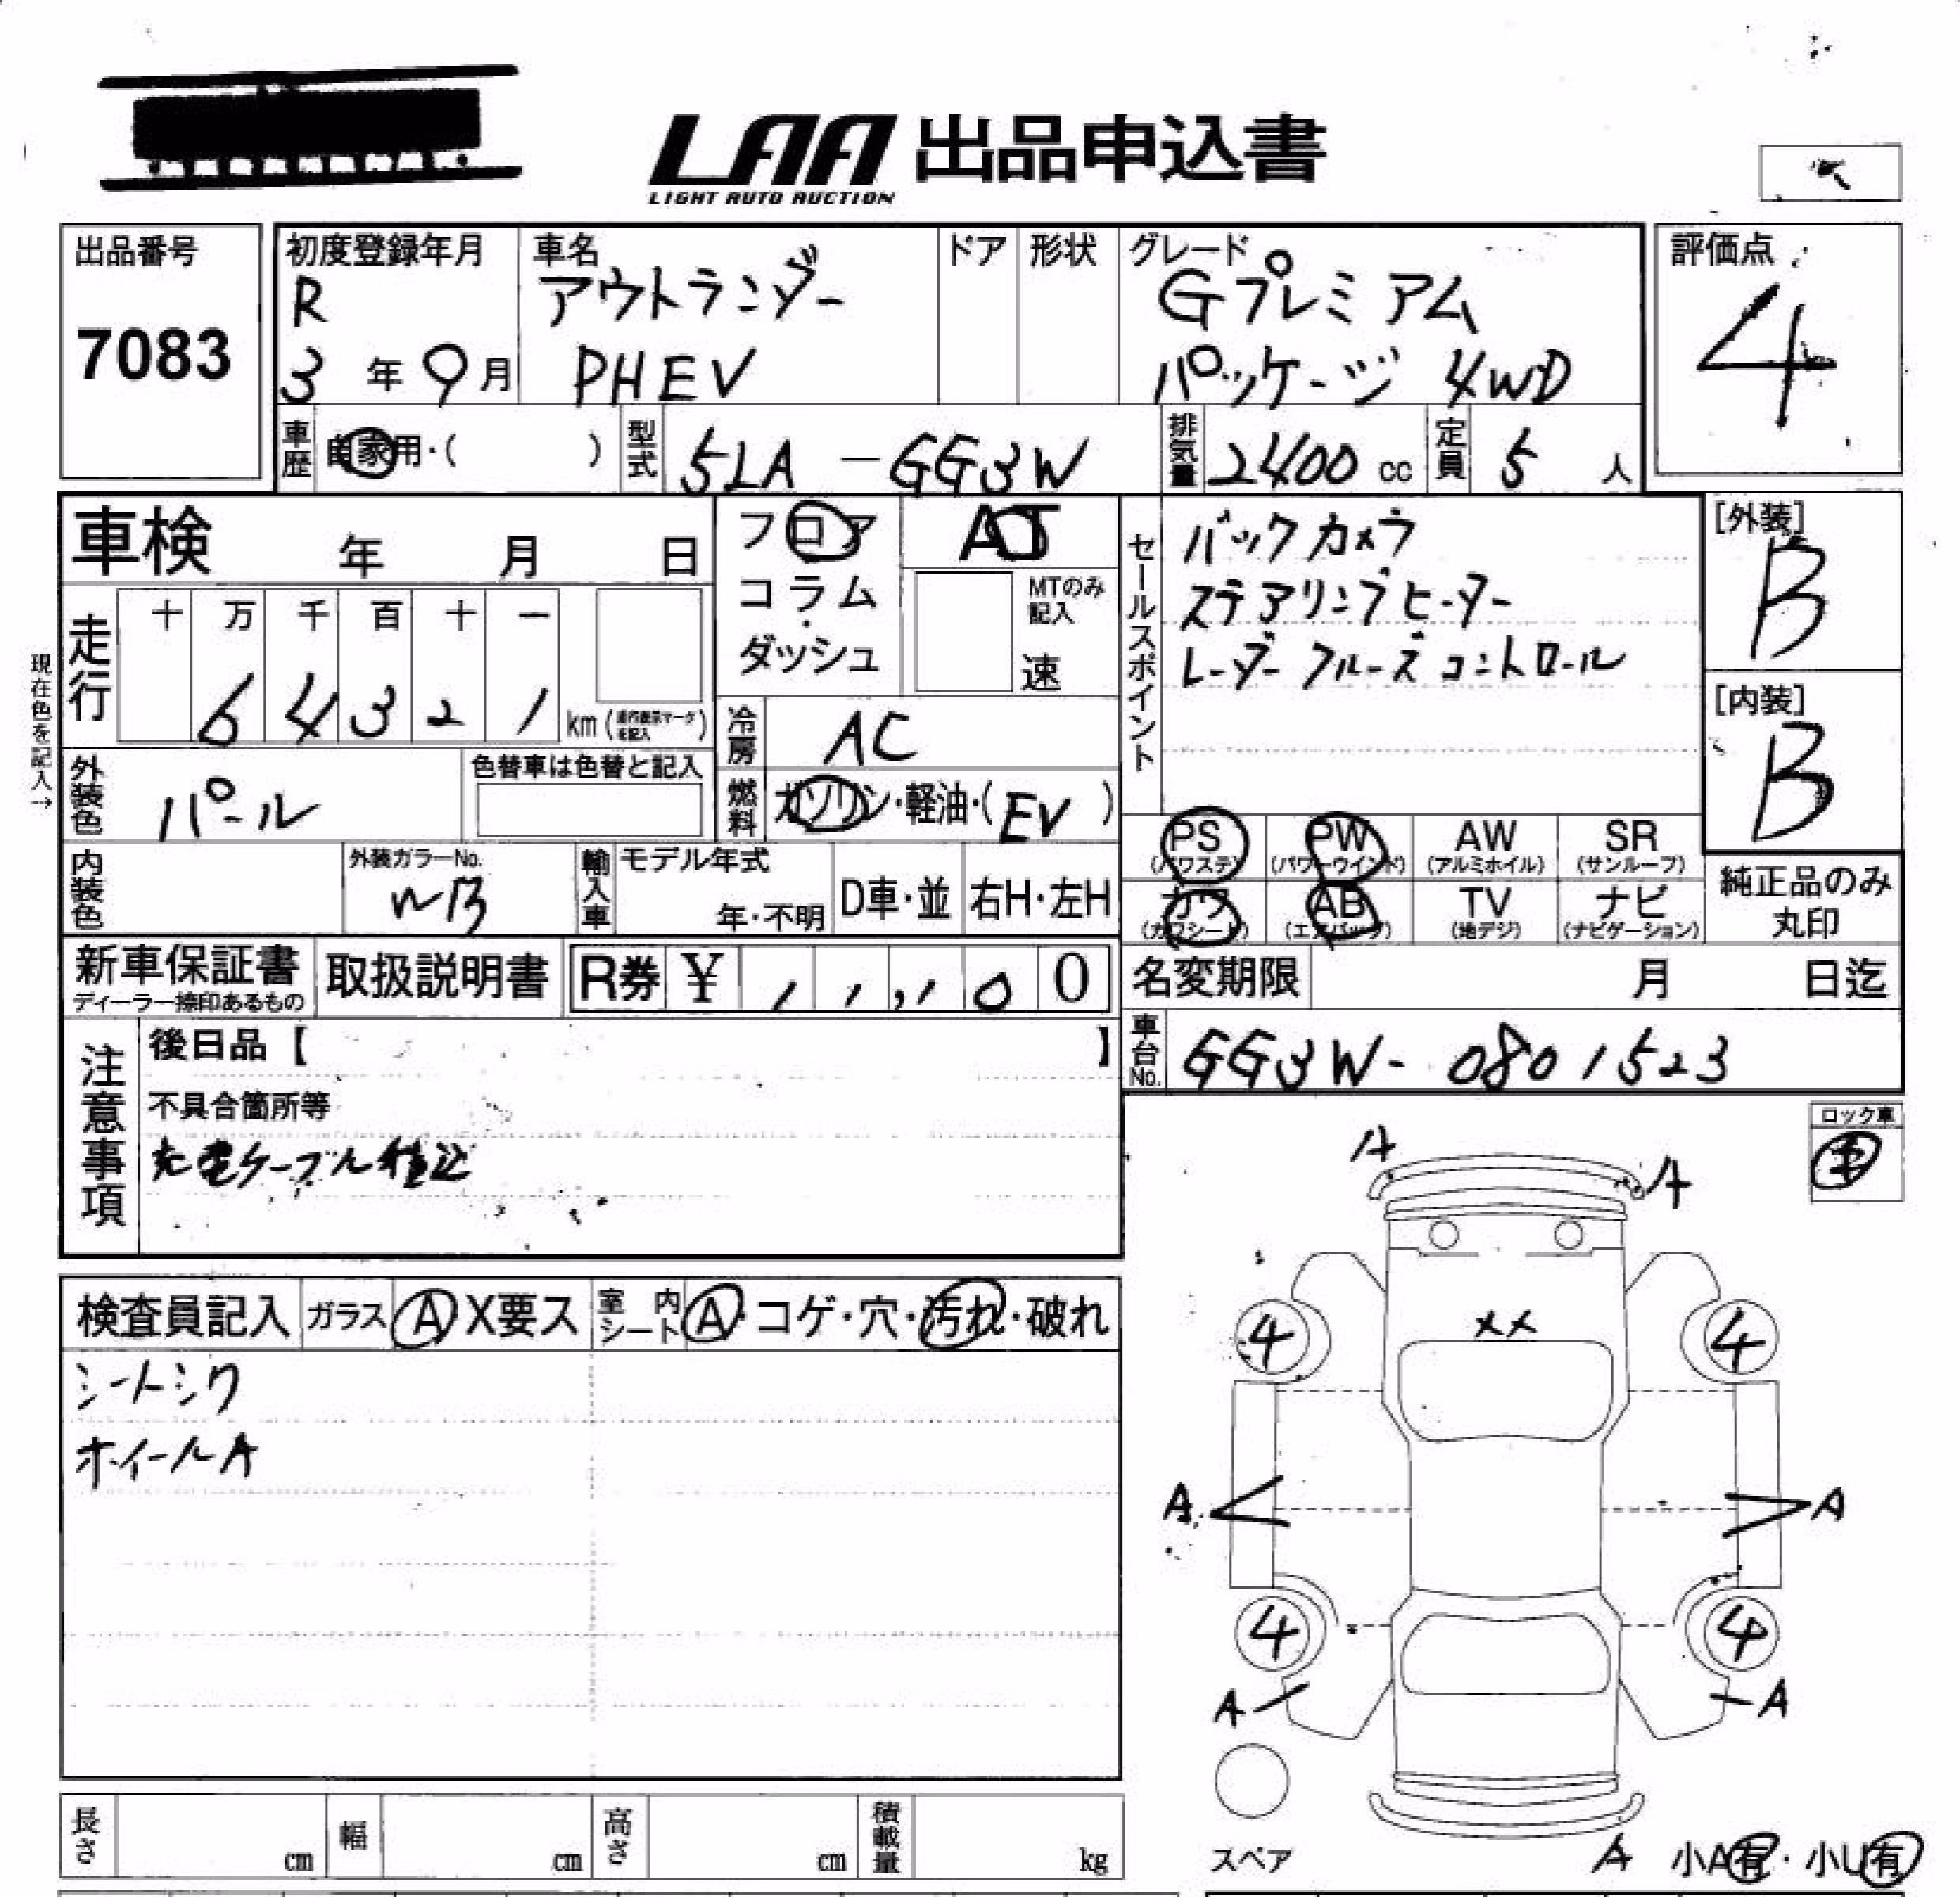 LAA 出品申込書
LIGHT AUTO AUCTION
出品番号
7083
初度登録年月
R
3 年 9 月
車名
アウトランダー
PHEV
ドア
形状
グレード
Gプレミアム
パッケージ 4WD
評価点
4
車歴
自家用・( )
型式
5LA-GG3W
排気量
2400 cc
定員
5 人
車検 年 月 日
フロア
コラム
ダッシュ
AT
MTのみ
記入
速
セールスポイント
バックカメラ
ステアリングヒーター
レーダークルーズコントロール
[外装]
B
[内装]
B
現在色を記入→
走行
十 万 千 百 十 一
6 4 3 2 1 km (走行表示マークを記入)
冷房
AC
外装色
パール
色替車は色替と記入
燃料
ガソリン・軽油・(EV)
PS
(パワステ)
PW
(パワーウインド)
AW
(アルミホイル)
SR
(サンルーフ)
カワ
(カワシート)
AB
(エアバッグ)
TV
(地デジ)
ナビ
(ナビゲーション)
純正品のみ
丸印
内装色
外装カラーNo.
W13
輸入車
モデル年式
年・不明
D車・並
右H・左H
新車保証書
ディーラー捺印あるもの
取扱説明書
R券 ¥ 1 1,1 0 0
名変期限 月 日迄
車台No.
GG3W-0801523
注意事項
後日品【 】
不具合箇所等
充電ケーブル積込
ロック車
検査員記入
ガラス
A X要ス
室内シート
A・コゲ・穴・汚れ・破れ
シートシワ
ホイールA
A
A
XX
4
4
A
A
4
4
A
A
スペア
A 小A有・小U有
長さ cm
幅 cm
高さ cm
積載量 kg